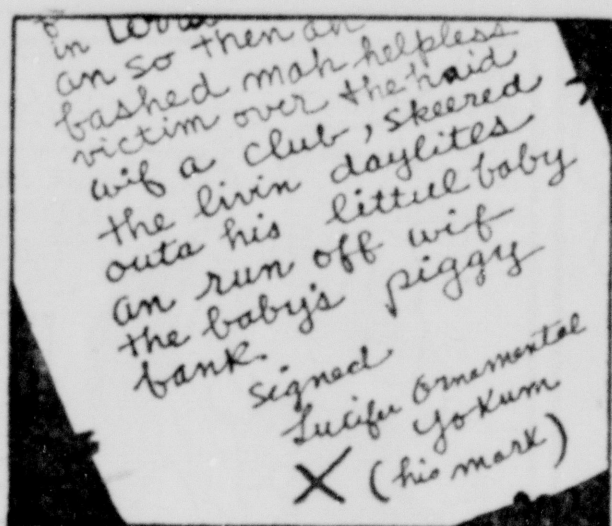 in
an so then an
bashed mah helpless
victim over the haid
wif a club, skeered
the livin daylites
outa his littul baby
an run off wif
the baby's piggy
bank.
Signed
Lucifer Ornamental
Yokum
X (his mark)